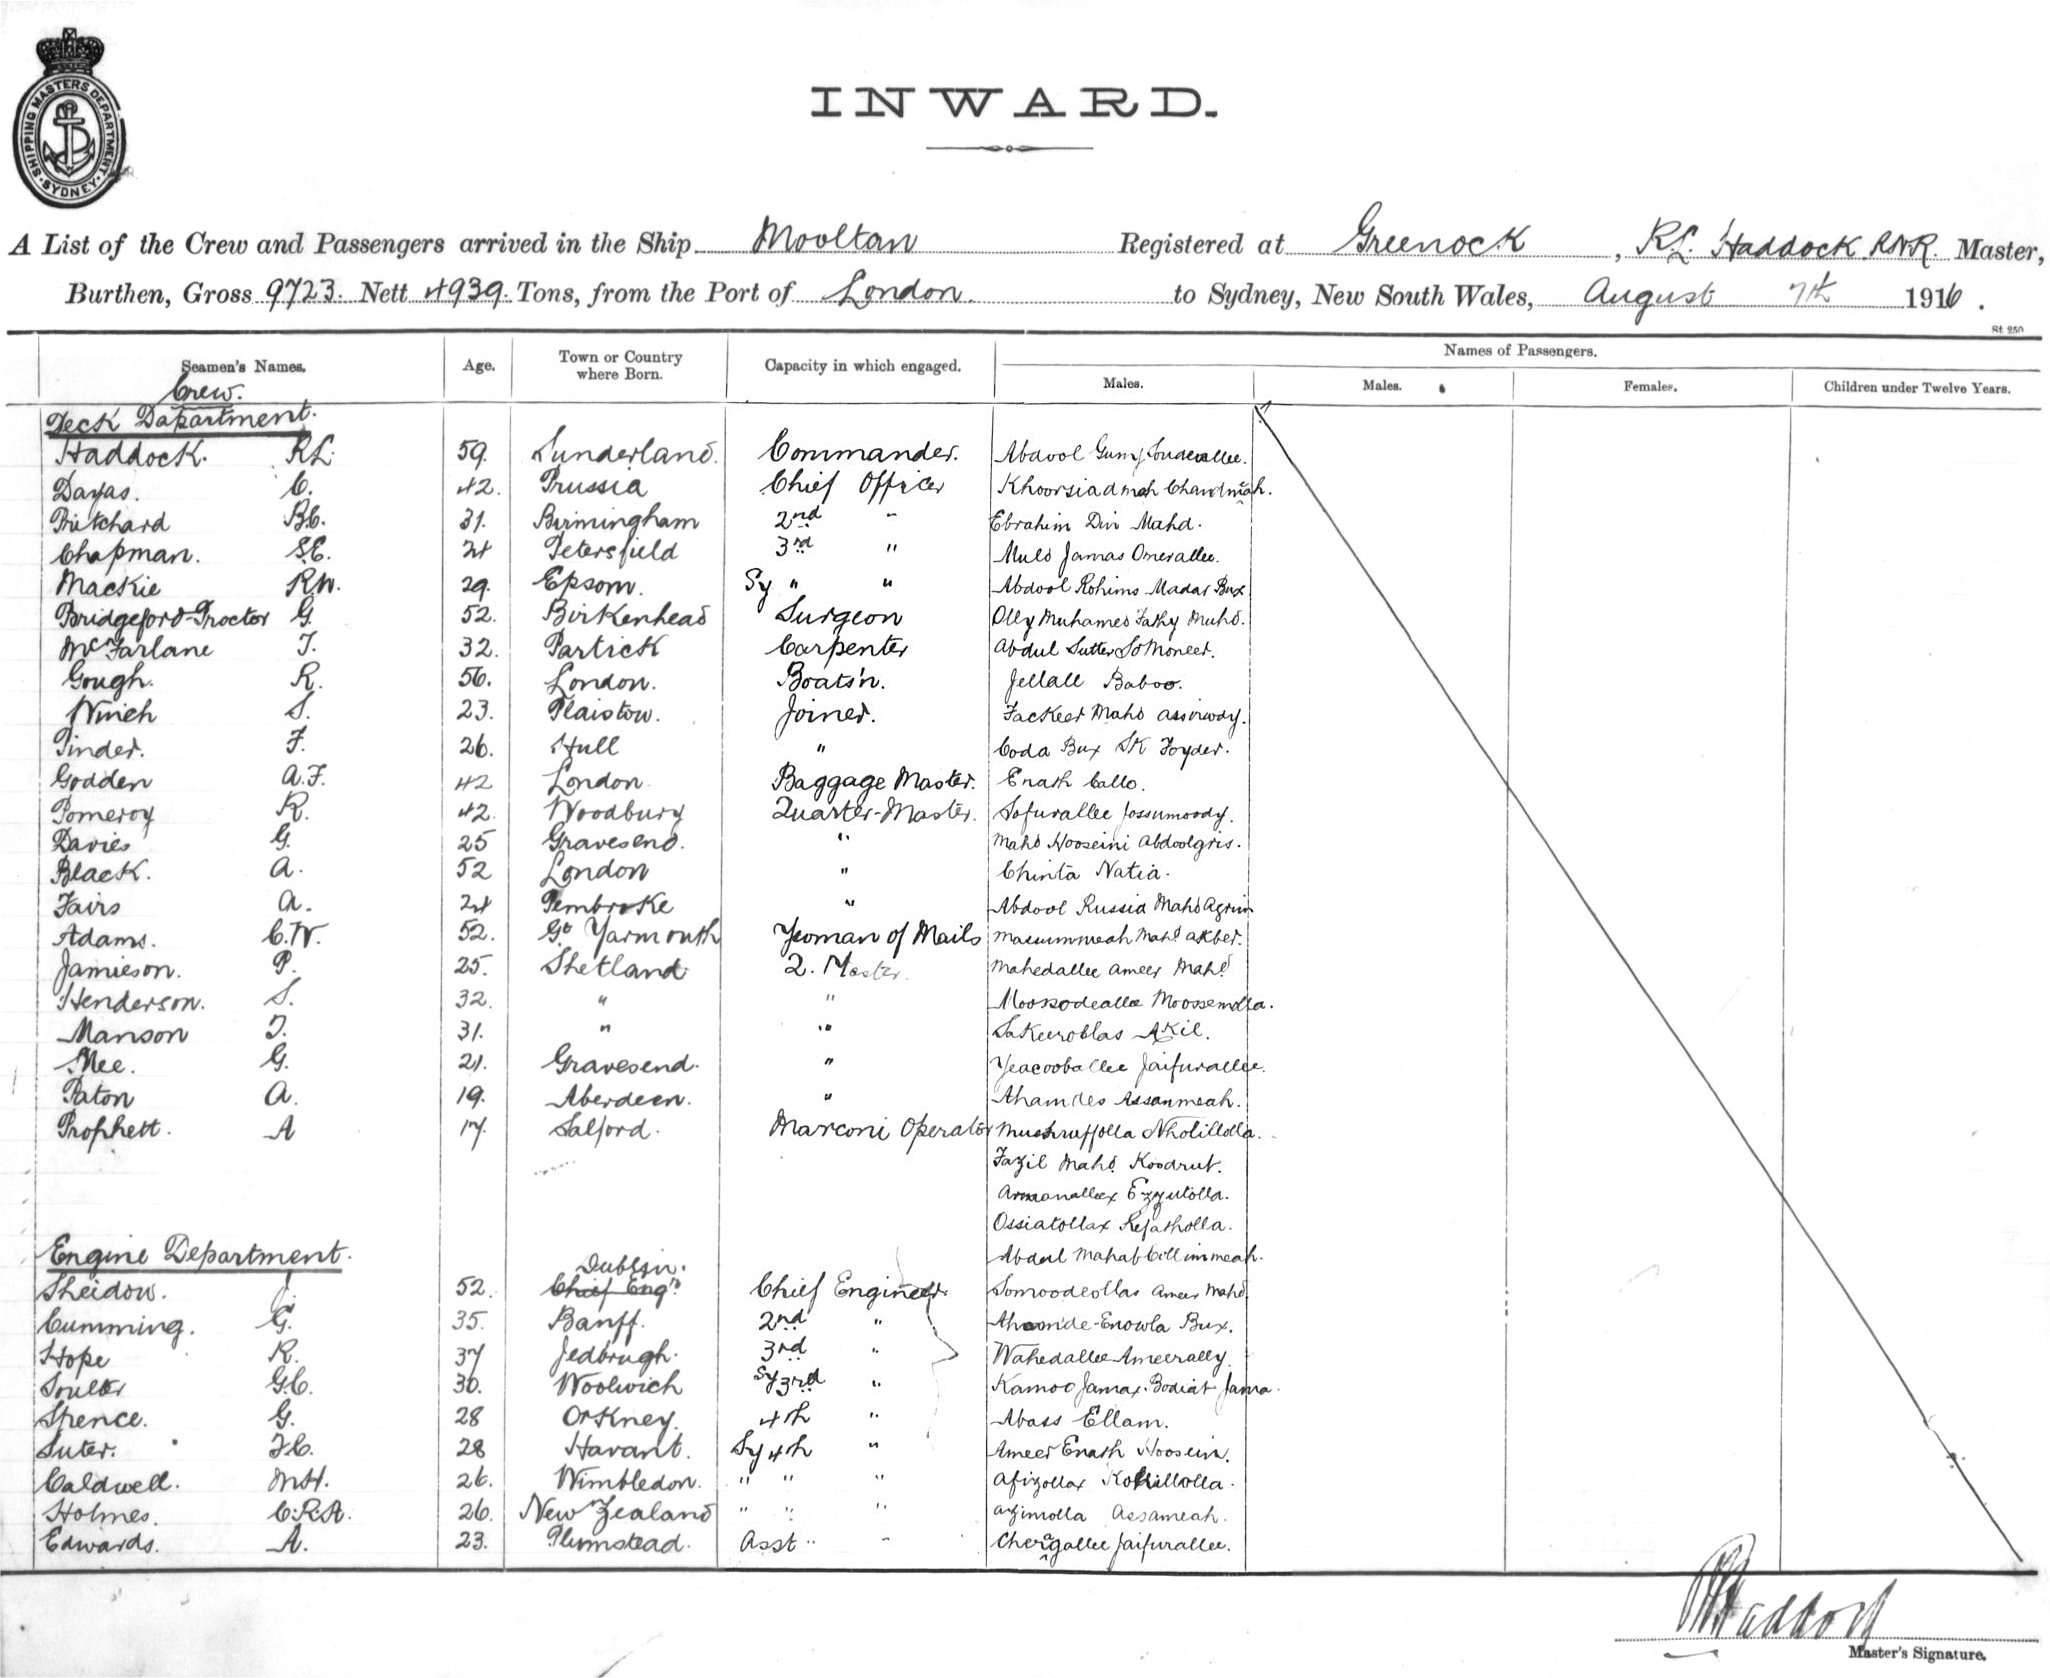 SHIPPING MASTERS DEPARTMENT · SYDNEY ·
INWARD.
A List of the Crew and Passengers arrived in the Ship Mooltan Registered at Greenock, R.L. Haddock R.N.R. Master,
Burthen, Gross 9723. Nett 4939. Tons, from the Port of London. to Sydney, New South Wales, August 7th 1916.
St 250
Seamen's Names. Age. Town or Country where Born. Capacity in which engaged. Names of Passengers.
Males. Males. Females. Children under Twelve Years.
Crew.
Deck Department.
Haddock. R.L. 59. Sunderland. Commander. Abdool
Dayas. C. 42. Prussia Chief Officer Khoorsiadmeh Chandmiah.
Pritchard B.C. 31. Birmingham 2nd " Ebrahim Din Mahd.
Chapman. S.E. 24 Petersfield 3rd " Muld Jamas Omerallee.
Mackie R.W. 29. Epsom. Sy " " Abdool Rohims Madar Bux
Bridgeford-Proctor G. 52. Birkenhead Surgeon Olly Muhamed Fakhy Muhd.
McFarlane T. 32. Partick Carpenter Abdul Sutter Moneer.
Gough. R. 56. London. Boats'n. Jellall Baboo.
Winch S. 23. Plaistow. Joiner. Fackeer Mahd Assirwody.
Pinder. F. 26. Hull " Coda Bux SK Foyder.
Godden A.F. 42 London Baggage Master. Enath Callo.
Pomeroy R. 42. Woodbury Quarter-Master. Sofurallee Jossumoody.
Davies G. 25 Gravesend. " Mahd Hooseini Abdoolgris.
Black. A. 52 London " Chinta Natia.
Fairs A. 24 Pembroke " Abdool Russid Mahd Agrim
Adams. C.W. 52. Gt Yarmouth Yeoman of Mails Massummeah Mahd Akber.
Jamieson. P. 25. Shetland Q. Master. Mahedallee Ameer Mahd
Henderson. S. 32. " " Moosodeallee Moossemolla.
Manson T. 31. " " Sakeeroblas Akil.
Mee. G. 21. Gravesend. " Yeacooballee Jaifurallee.
Paton A. 19. Aberdeen. " Ahamdeo Assanmeah.
Prophett. A 17. Salford. Marconi Operator Mushruffolla Nholillolla.
Fazil Mahd. Koodrut.
Armanalleex Ezzutolla.
Ossiatollax Refatholla.
Abdul Mahab Collimmeah.
Engine Department.
Dublin.
Sheidow. J. 52. Chief Engr Chief Engineer. Somoodeollas Ameer Mahd
Cumming. G. 35. Banff. 2nd " Enowla Bux.
Hope R. 37 Jedbrugh. 3rd " Wahedallee Ameerally.
Soulter G.C. 30. Woolwich Sy 3rd " Kamoo Jamax. Bodiat Jama.
Spence. G. 28 Orkney. 4th " Abass Ellam.
Suter. F.C. 28 Havant. Sy 4th " Ameer Enath Hoosein.
Caldwell. M.H. 26. Wimbledon. " " " Afizollax Kohillolla.
Holmes. C.R.A. 26. New Zealand " " " Azimolla Assameah.
Edwards. A. 23. Plumstead. Asst " " Cheragallee Jaifurallee.
R L Haddock
Master's Signature.